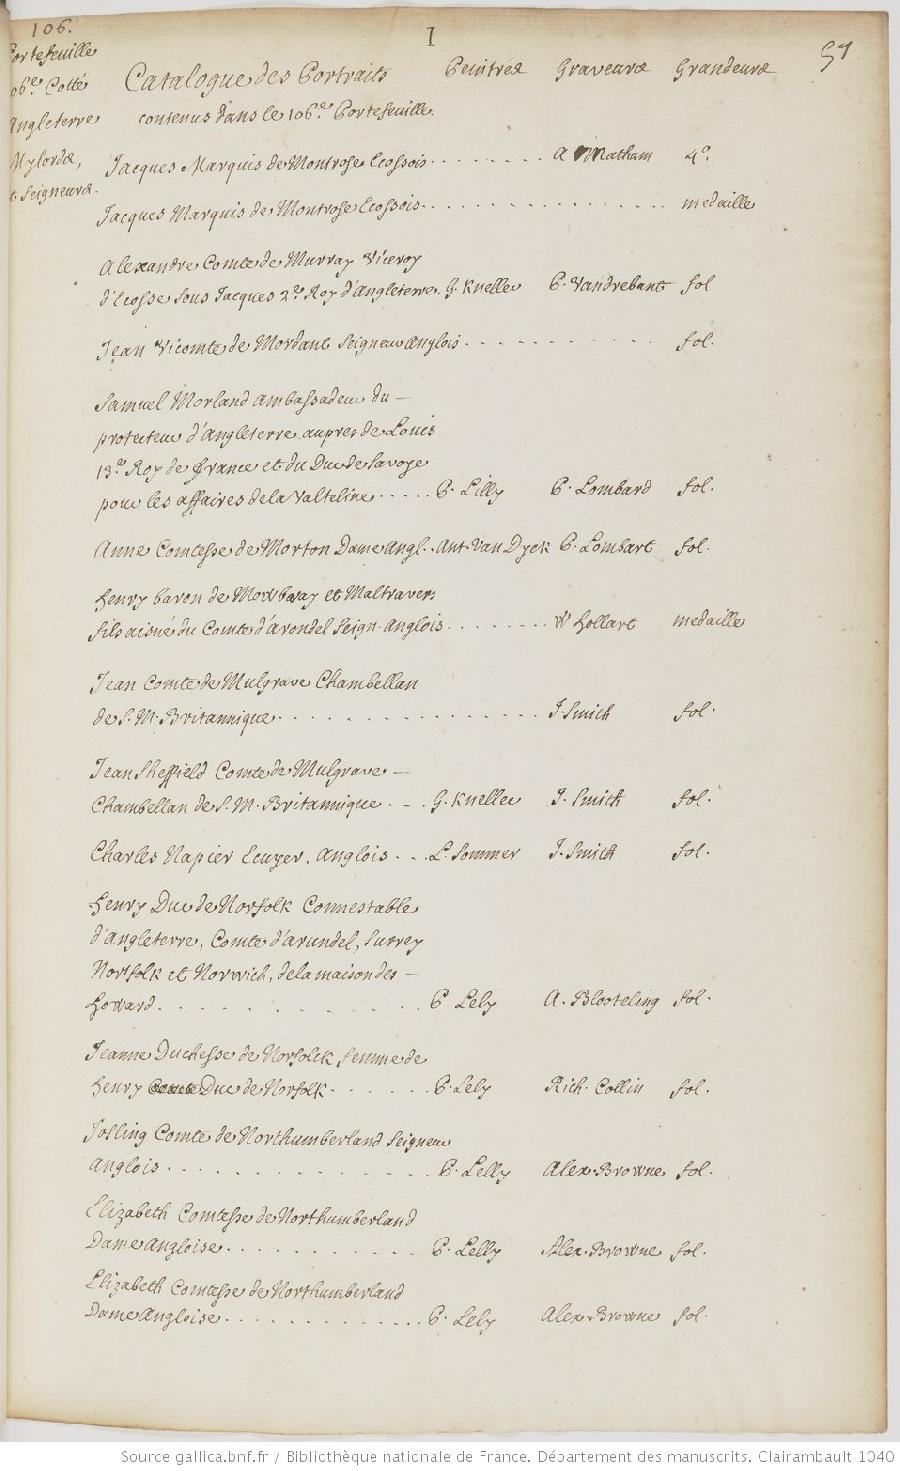 106.
I
51
Portefeuille
106e. Cotté
Angleterre
Mylords,
et Seigneurs.
Catalogue des Portraits Peintres Graveurs Grandeurs
contenus dans le 106e. Portefeuille.
Jacques Marquis de Montrose Ecossois. . . . . . . . A Matham 4o.
Jacques Marquis de Montrose Ecossois. . . . . . . . . . . . . . . . medaille
Alexandre Comte de Murray Viceroy
d'Ecosse sous Jacques 2e. Roy d'Angleterre. G. Kneller P. Vandrebanc fol
Jean Vicomte de Mordant Seigneur anglois. . . . . . . . . . . fol.
Samuel Morland ambassadeur du —
protecteur d'Angleterre aupres de Louis
13e. Roy de France et du Duc de Savoye
pour les affaires de la Valteline. . . . . P. Lilly P. Lombard fol.
Anne Comtesse de Morton Dame Angl. . Ant. Van Dyck P. Lombart fol.
Henry baron de Mowbray et Maltravers
fils aisné du Comte d'Arondel Seign. anglois. . . . . . . . W Hollart medaille
Jean Comte de Mulgrave Chambellan
de S. M. Britannique. . . . . . . . . . . . . . . . J. Smith fol.
Jean Sheffield Comte de Mulgrave —
Chambellan de S. M. Britannique. . . . G. Kneller J. Smith fol.
Charles Napier Ecuyer. anglois. . . L. Sommer J. Smith fol.
Henry Duc de Norfolk Connestable
d'Angleterre, Comte d'arundel, Surrey
Norfolk et Norwich, de la maison des —
Howard. . . . . . . . . . . . . P Lely A. Blooteling fol.
Jeanne Duchesse de Norfolck femme de
Henry Duc de Norfolk. . . . . . . P. Lely Rich. Collin fol.
Josling Comte de Northumberland Seigneur
anglois. . . . . . . . . . . . . P. Lelly Alex. Browne fol.
Elizabeth Comtesse de Northumberland
Dame angloise. . . . . . . . . . . P. Lelly Alex. Browne fol.
Elizabeth Comtesse de Northumberland
Dame Angloise. . . . . . . . . . . P. Lely Alex. Browne fol.
Source gallica.bnf.fr / Bibliothèque nationale de France. Département des manuscrits. Clairambault 1040